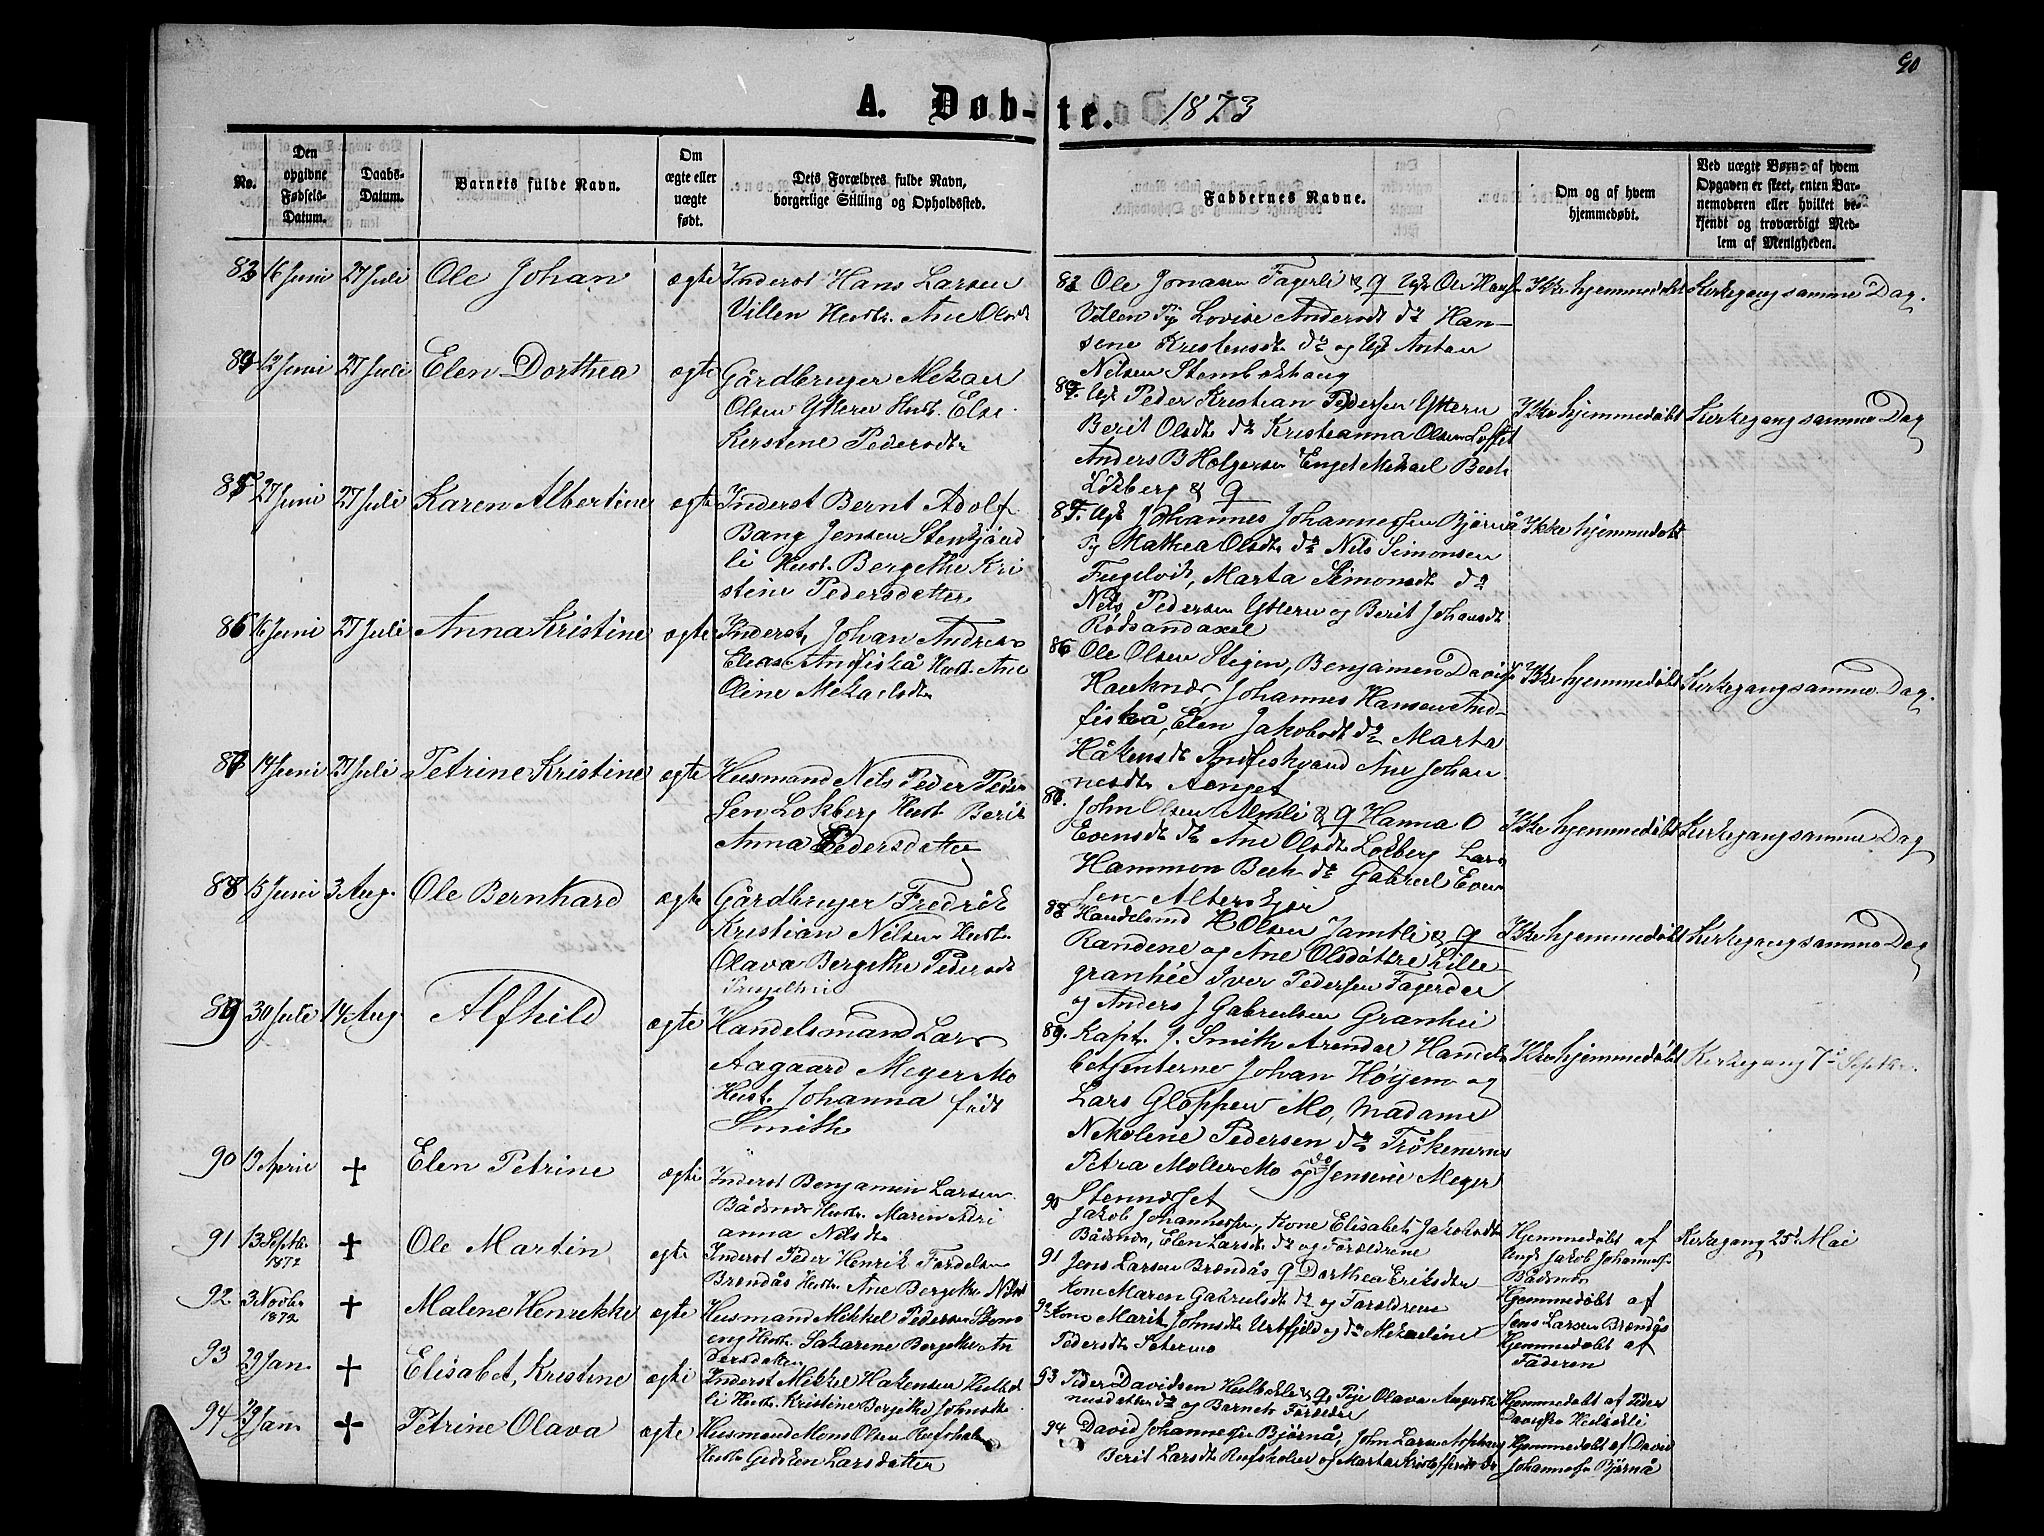 90
A. Døb-te. 1873
No.
Den opgivne Fødsels-Datum.
Daabs-Datum.
Barnets fulde Navn.
Om ægte eller uægte født.
Dets Forældres fulde Navn, borgerlige Stilling og Opholdssted.
Faddernes Navne.
Om og af hvem hjemmedøbt.
Ved uægte Børn: af hvem Opgaven er skeet, enten Barnemoderen eller hvilket bekjendt og troværdigt Medlem af Menigheden.
83 16 Juni 27 Juli Ole Johan ægte Inderst Hans Larsen
Villen Hustr. Ane Olsdt
83 Ole Jonasen Fagerli & q Ugk Ole Hans
Villen Pig Lovise Andersdt do Han-
sene Kristensdt do og Ugk Antan
Nilsen Stenbakhaug
Ikke hjemmedøbt Kirkegang samme Dag.
84 12 Juni 27 Juli Elen Dorthea ægte Gårdbruger Mekal
Olsen Ytteren Hust. Else
Kirstene Pedersdtr
84. Ugk Peder Kristian Pedersen Yttern
Berit Olsdt do Kristianna Olsen Loftet
Anders B Holgersen Enget Mekael Bech
Lökberg & q
Ikke hjemmedøbt Kirkegang samme Dag
85 27 Juni 27 Juli Karen Albertine ægte Inderst Bernt Adolf
Bang Jensen Stenkjønd
li Hust. Bergethe Kri
stine Pedersdatter
85. Ugk Johannes Johannessen Bjørnå
Pg Mathea Olsdt do Nils Simonsen
Fugelvik, Marta Simonsdt do
Nels Pedersen Yttern og Berit Johansdt
Rödsandaxel
Ikke hjemmedøbt
86 16 Juni 27 Juli Anna Kristine ægte Inderst Johan Andreas
Eliase Andfiskå Hust. Ane
Oline Mekaelsdtr
86 Ole Olsen Stigen, Benjamin Davids
Hauknes Johannes Hansen And-
fiskå, Elen Jakobsdt do Marta
Håkensdt Andfiskvand Ane Johan
nesdt Aenget
Ikke hjemmedøbt Kirkegang samme Dag.
87 14 Juni 27 Juli Petrine Kristine ægte Husmand Nels Peder Peder
sen Lökberg Hust Berit
Anna Pedersdatter
87. John Olsen Almli & q Hanna O
Evensdt do Ane Olsdt Lökberg Lars
Hammon Bech do Gabriel Even
sen Alterskjær
Ikke hjemmedøbt Kirkegang samme Dag
88 15 Juni 3 Aug. Ole Bernhard ægte Gårdbruger Fredrik
Kristian Nilsen Hust.
Olava Bergethe Pedersdt
88 Handelsmd H Olsen Jamtli & q
Randene og Ane Olsdøttre Lille-
granhée Iver Pedersen Fagerdæ
og Anders J Gabrielsen Granhei
Ikke hjemmedøbt Kirkegang samme Dag
89 30 Juli 14 Aug. Alfhild ægte Handelsmand Lars
Aagaard Meyer Mo
Hust. Johanna født
Smith
89. Kapt. J. Smith Arendal Handels
betjenterne Johan Höyem og
Lars Gloppen Mo, Madame
Nikoline Pedersen do Frökenerne
Petra Moller Mo og do Jensine Meyer
Stennæset
Ikke hjemmedøbt Kirkegang 7de Septbr.
90 13 April † Elen Petrine ægte Inderst Benjamin Larsen
Båsmo Hustr. Maren Adri
anna Nilsdt
90 Jakob Johannessen, Kone Elisabet Jakobsdtr
Båsmo, Elen Larsdt do og Forældrene
Hjemmedøbt af
Ungk Jakob Johannes
Båsmo
Kirkegang 25d Mai
91 13 Septbr. 1872 † Ole Martin ægte Inderst Peder Henrik Tordelsen
Brendås Hustr. Ane Bergethe Nilsdt
91 Jens Larsen Brendås q Dorthea Eriksdtr
Kone Maren Gabrielsdt do og Forældrene
Hjemmedøbt af
Jens Larsen Brendås
92 3 Novbr 1872 † Malene Henrikke ægte Husmand Mikkel Pedersen Skomo
eng Hustr. Sakarine Bergethe An
dersdatter
92 Kone Marit Johnsdt Urtfjeld og do Mekaeline
Pedersdt Seterno
Hjemmedøbt af
Faderen
93 29 Jan. † Elisabet, Kristine ægte Inderst Mikkel Hakensen Hulbek
li Hustr. Kristine Bergethe Johnsdt
93 Peder Davidsen Hulbekli & q Pige Olava
nusdatter do og Barnets Forældre
Hjemmedøbt af Peder
Davidsen Hulbekli
94 19 Jan. † Petrine Olava ægte Husmand Mons Olsen Rufsholm
Hustr Gidsken Larsdatter
94 David Johannessen Bjørnå, John Larsen
Berit Larsdt Rufsholm og Marta Kristoffersdt do
Hjemmedøbt af David
Johannessen Bjørnå